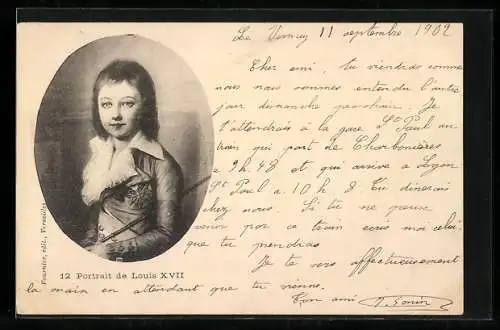 Le Vernay 11 septembre 1902
Cher ami, tu viendras comme
nous nous sommes entendu l'autre
jour dimanche prochain. Je
t'attendrais à la gare de St Paul au
train qui part de Charbonières
a 9h 48 et qui arrive a Lyon
St Paul a 10 h 8 Tu dinerais
chez nous. Si tu ne peux
venir par ce train ecris moi celui
que tu prendras
Je te serre affectueusement
la main en attendant que tu vienne.
Ton ami
12 Portrait de Louis XVII
Fournier, édit., Versailles